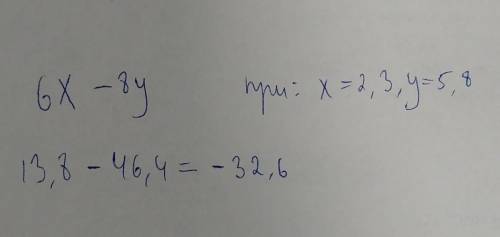 6x - 8y при: x = 2,3, y = 5,8
13,8 - 46,4 = - 32,6